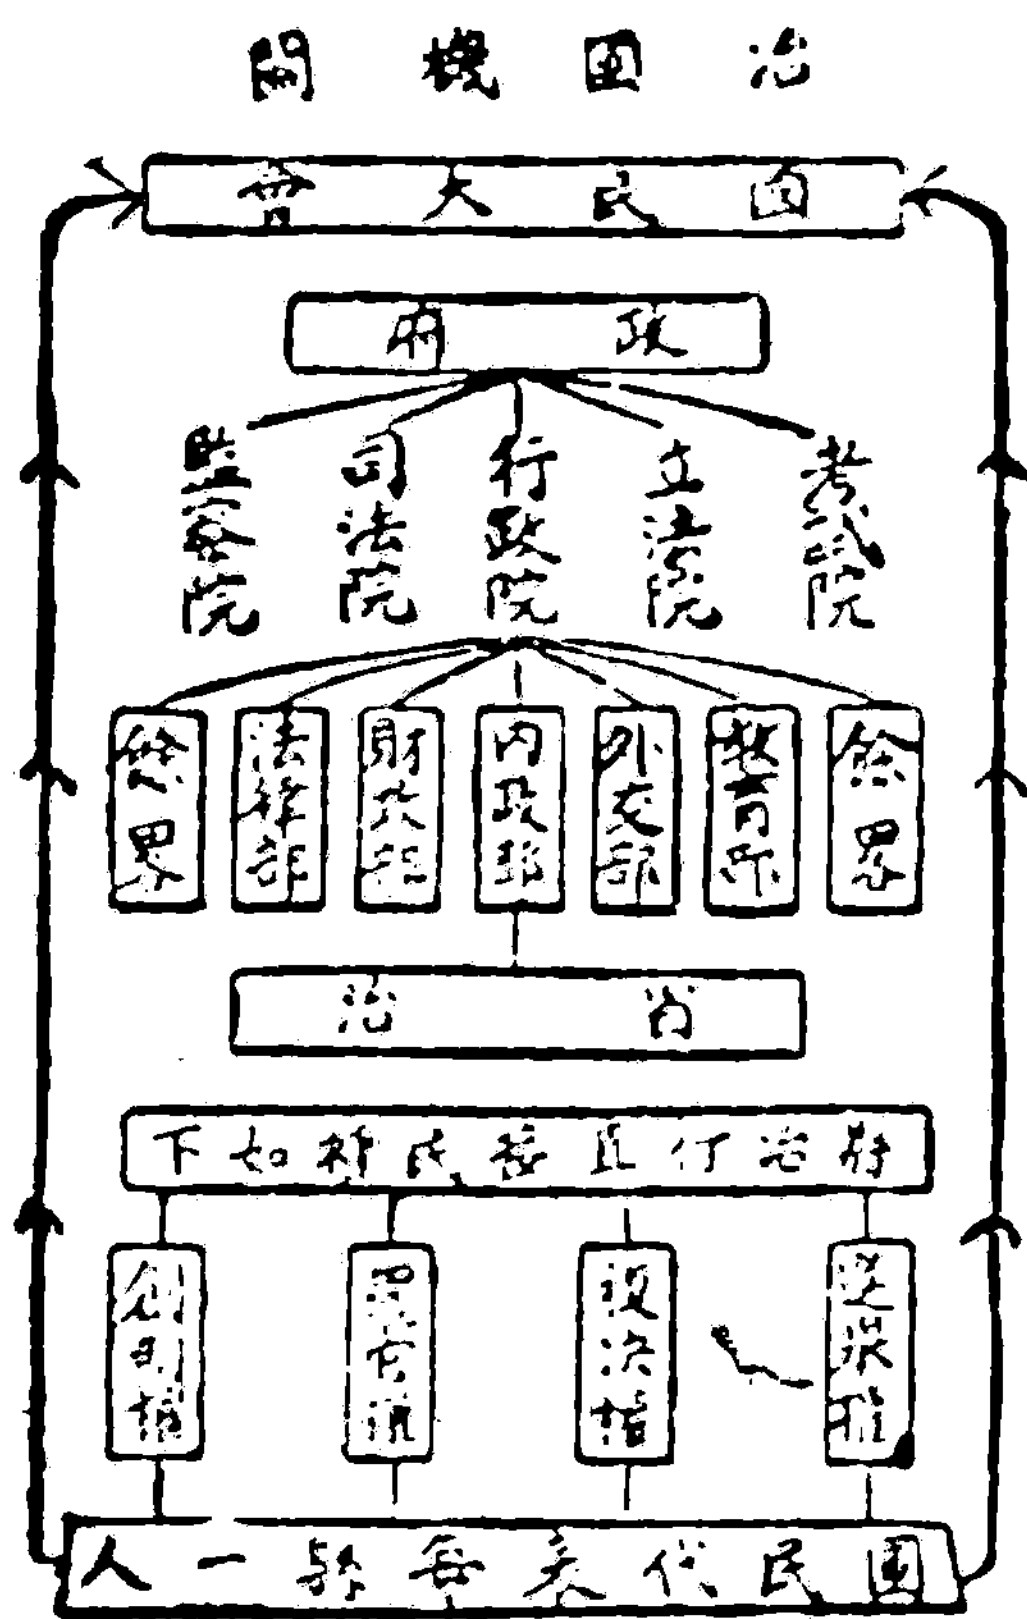 治國機關
國民大會
政府
考試院
立法院
行政院
司法院
監察院
餘畧
教育部
外交部
內政部
財政部
法律部
餘畧
省治
縣治行直接民權如下
選舉權
複決權
罷官權
創制權
國民代表每縣一人